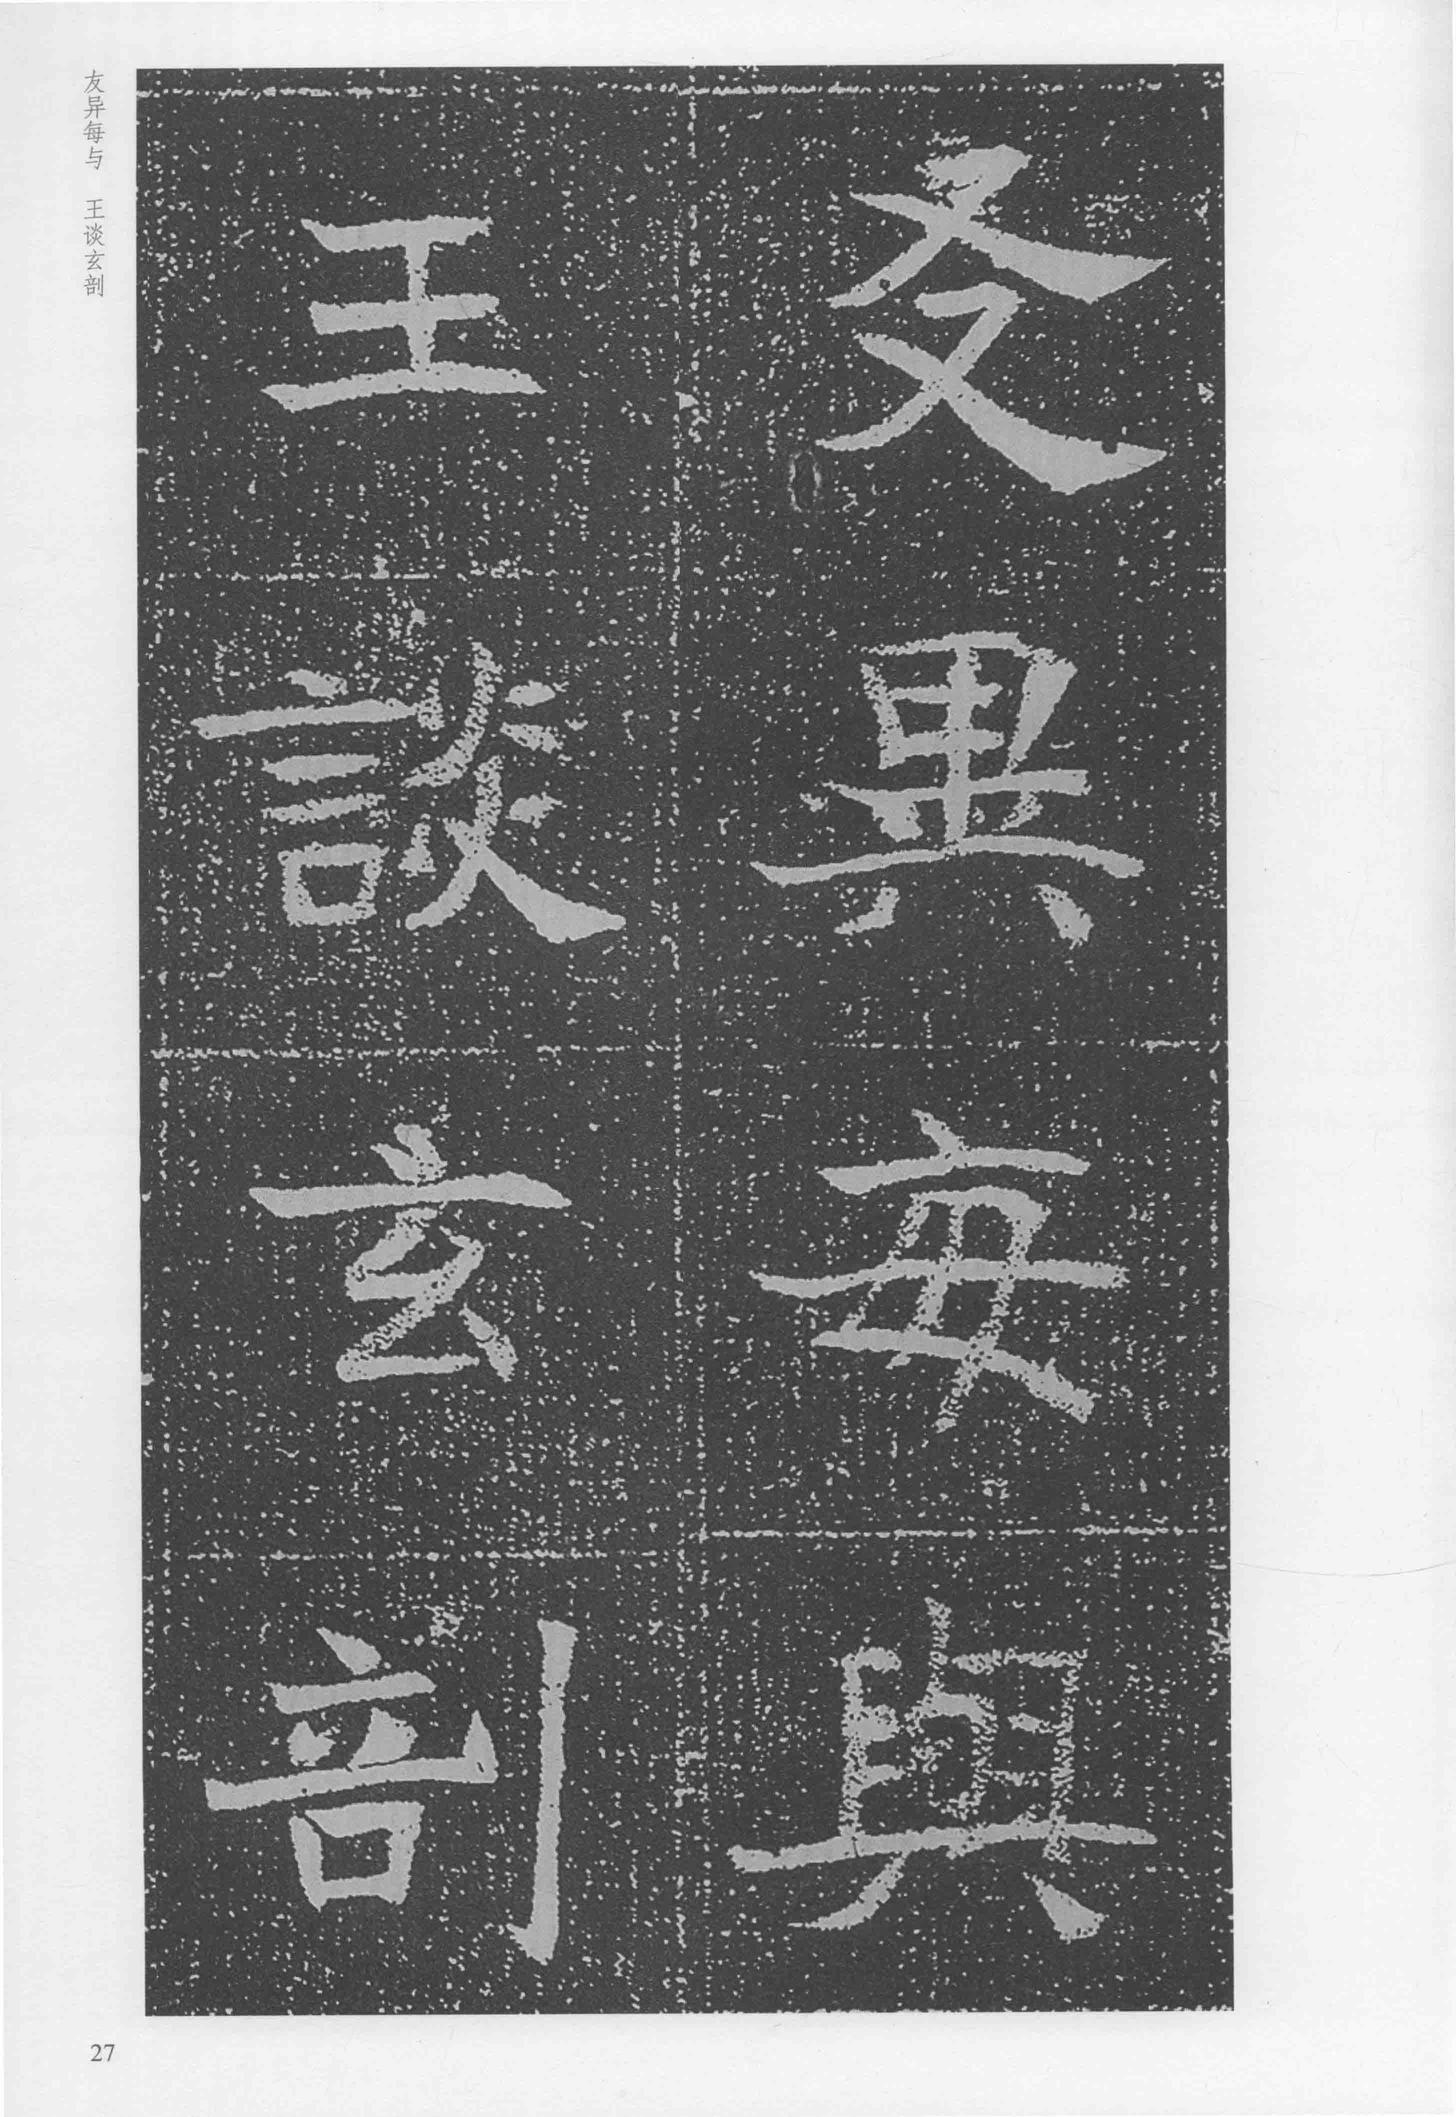 友異每與
王談玄剖
友异每与 王谈玄剖
27